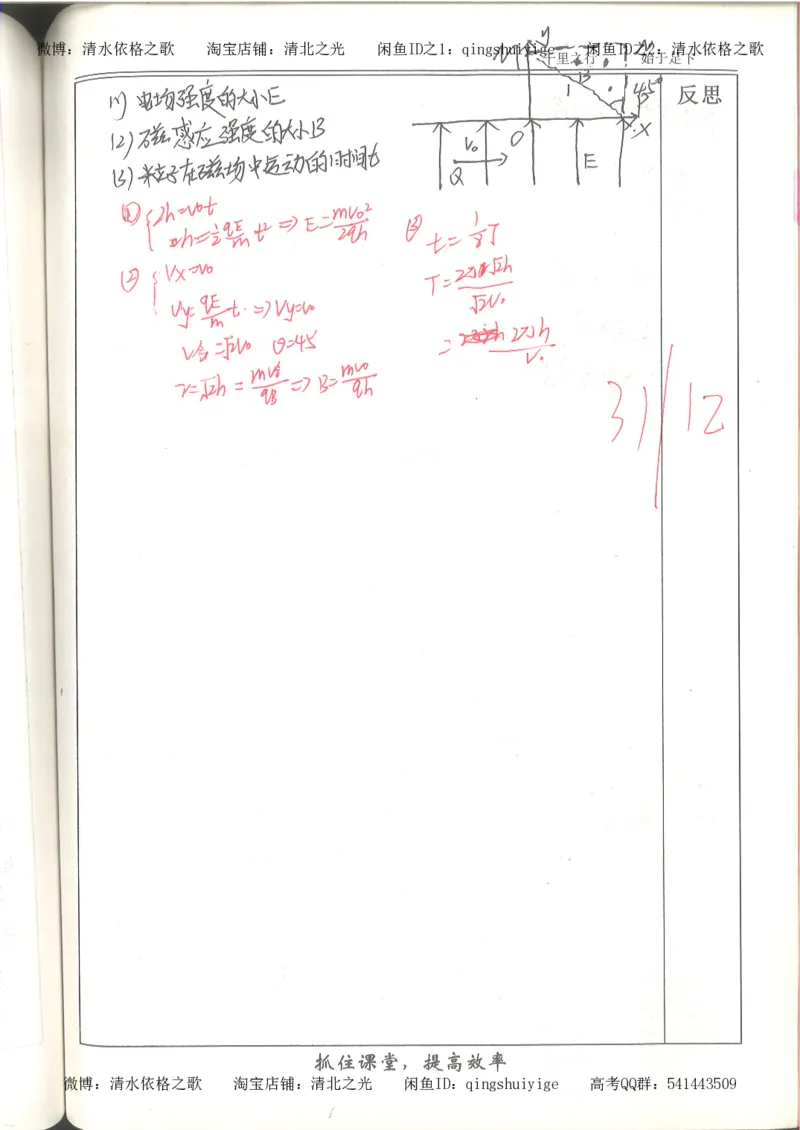 微博：清水依格之歌 淘宝店铺：清北之光 闲鱼ID之1：qingshuiyige 闲鱼ID之2：清水依格之歌
千里之行，始于足下
反思
(1) 电场强度的大小E
(2) 磁感应强度的大小B
(3) 粒子在磁场中运动的时间t
y
M
N
B
45°
P
X
O
V₀
Q
E
① { 2h=v₀t
h=½ qE/m t² => E=mv₀²/2qh
② { Vx=v₀
Vy=qE/m t => Vy=v₀
V合=√2v₀ θ=45
r=√2h = mv/qB => B=mv₀/qh
③ t=1/8T
T=2π√2h/√2v₀
=2πh/v₀
31/12
抓住课堂，提高效率
微博：清水依格之歌 淘宝店铺：清北之光 闲鱼ID：qingshuiyige 高考QQ群：541443509